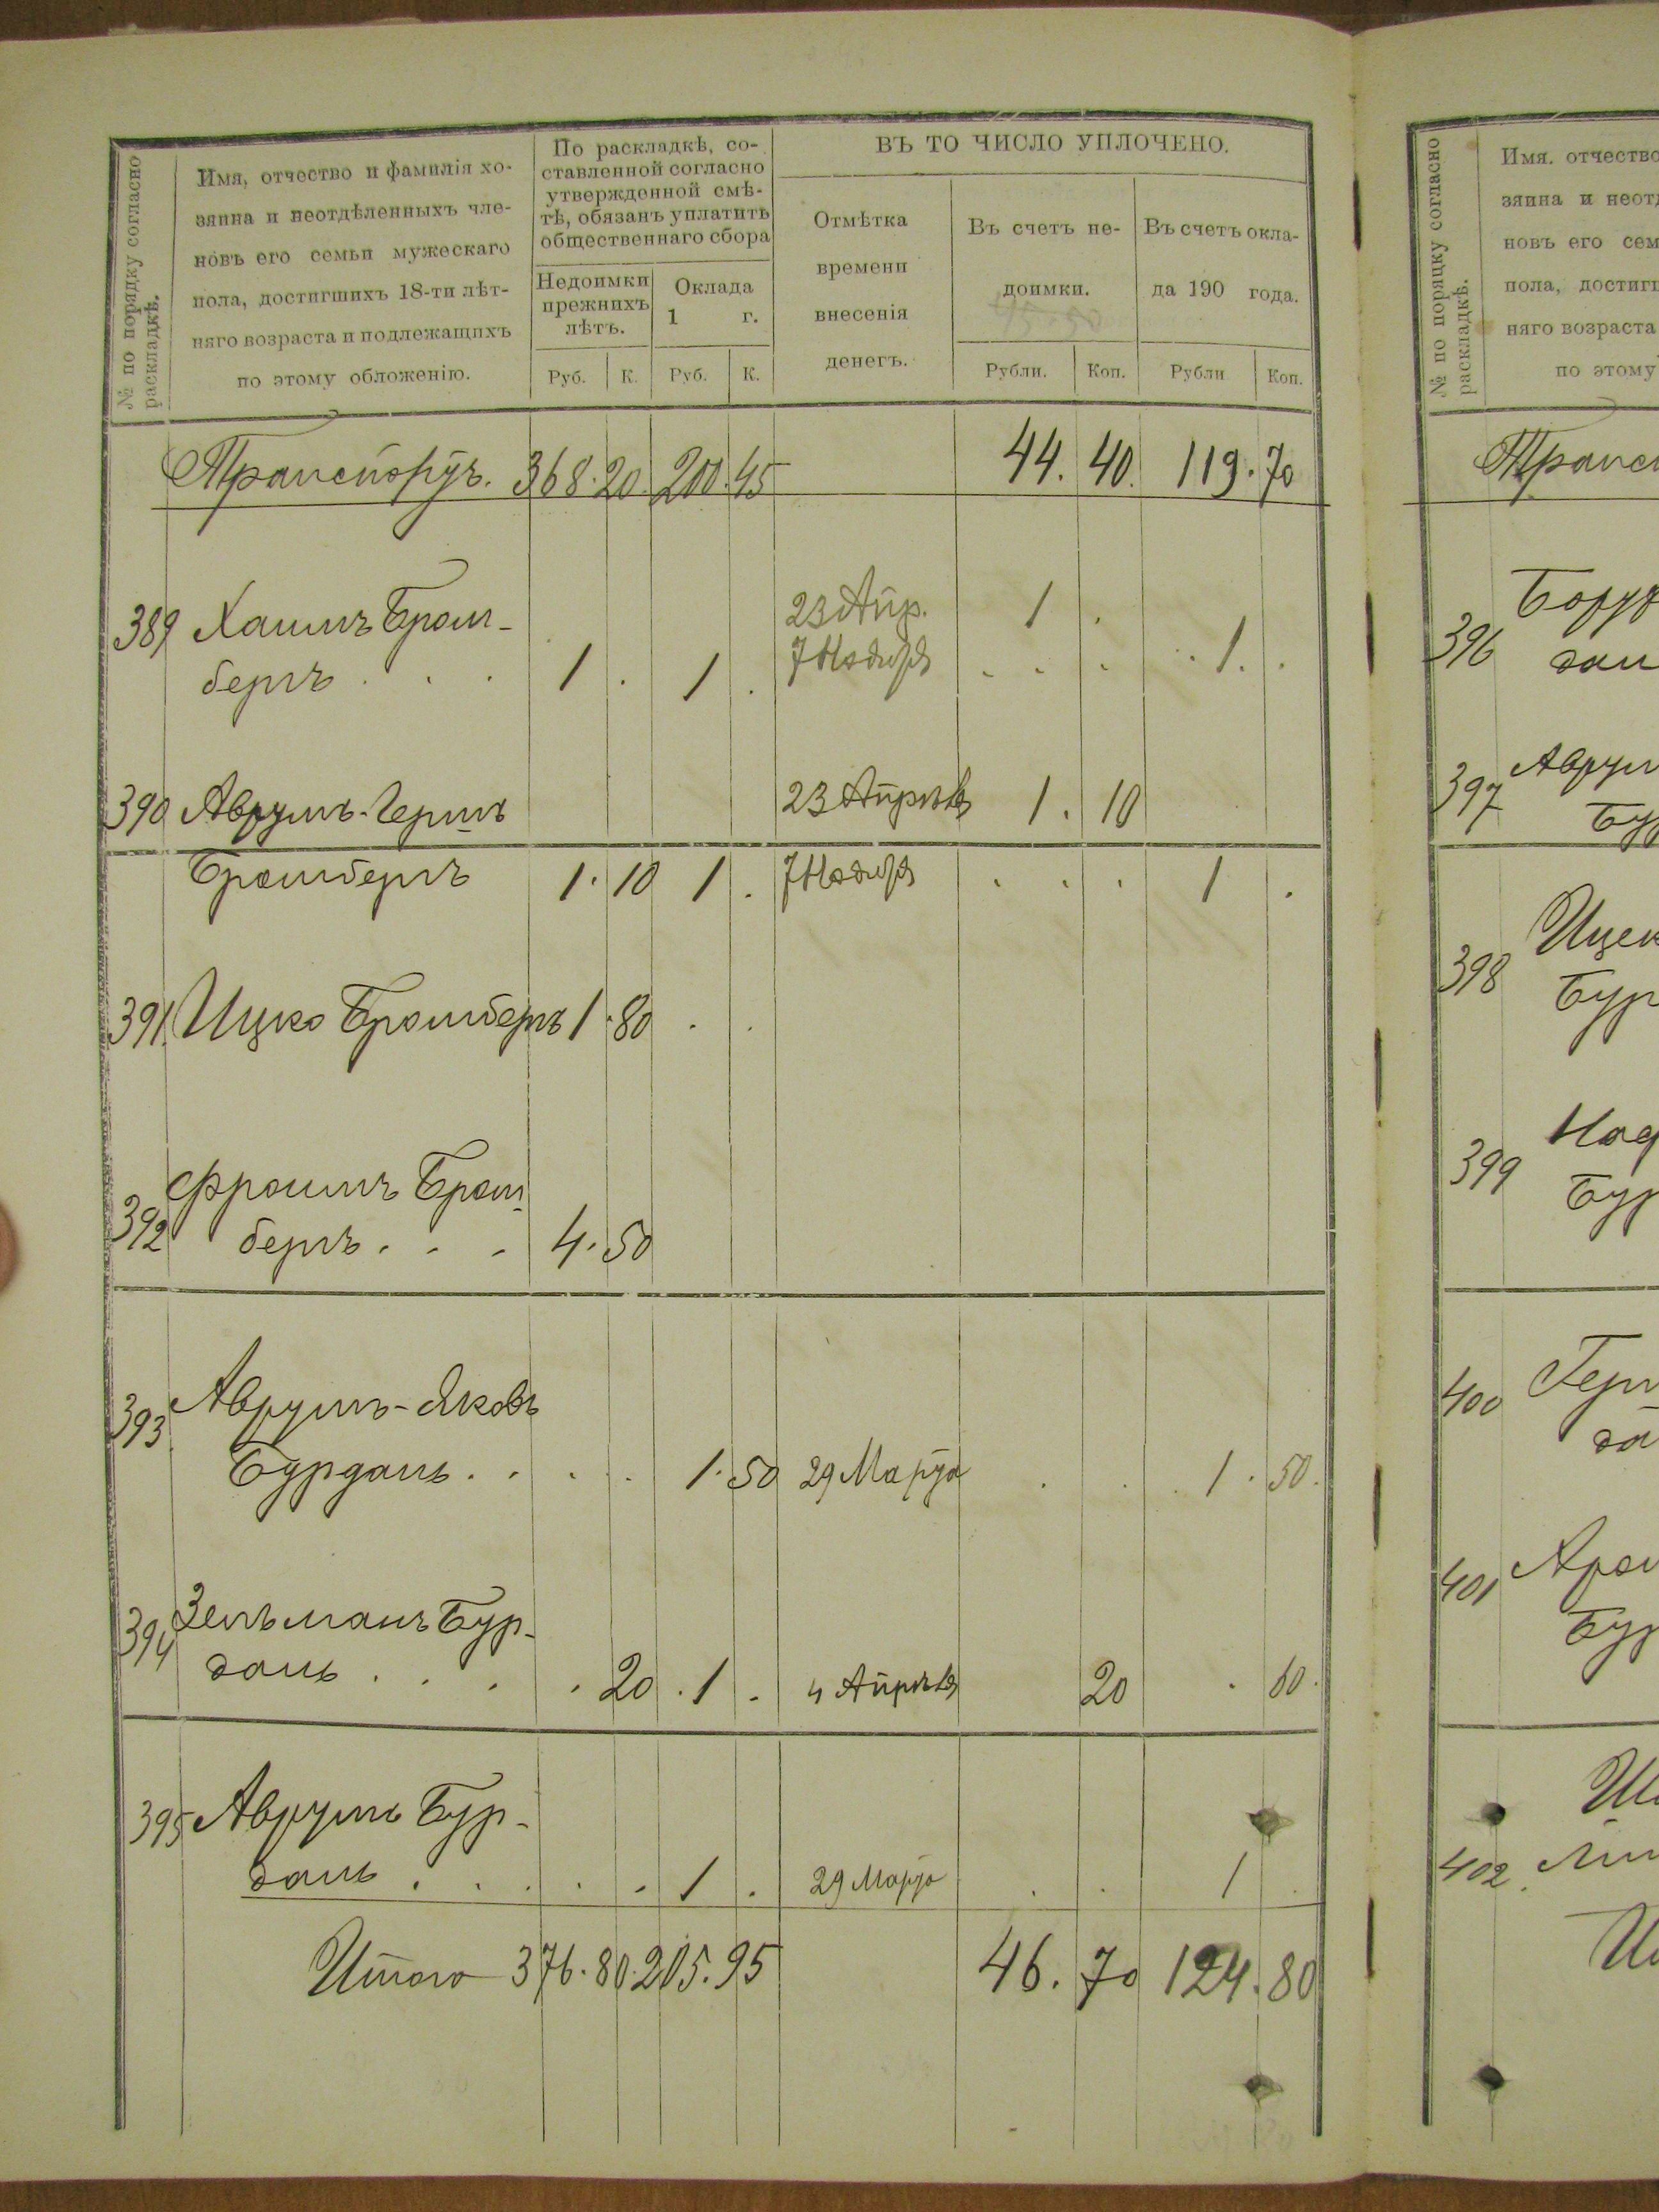 № по порядку согласно раскладкѣ.
Имя, отчество и фамилія хо-
зяина и неотдѣленныхъ чле-
новъ его семьи мужескаго
пола, достигшихъ 18-ти лѣт-
няго возраста и подлежащихъ
по этому обложенію.
По раскладкѣ, со-
ставленной согласно
утвержденной смѣ-
тѣ, обязанъ уплатить
общественнаго сбора
Недоимки
прежнихъ
лѣтъ.
Оклада
1 г.
Руб. К. Руб. К.
ВЪ ТО ЧИСЛО УПЛОЧЕНО.
Отмѣтка
времени
внесенія
денегъ.
Въ счетъ не-
доимки.
Рубли. Коп.
Въ счетъ окла-
да 190 года.
Рубли Коп.
Транспортъ. 368. 20. 200. 45 44. 40. 119. 70
389 Хаимъ Бром- 23 Апр. 1 .
бергъ . . . 1 . 1 . 7 Ноября . . . . 1. .
390 Аврумъ-Гершъ 23 Апрѣля 1. 10
Бромбергъ 1. 10 1 . 7 Ноября . . . 1 .
391. Ицко Бромбергъ 1. 80 . .
392 Фроимъ Бром-
бергъ . . . 4. 50
393 Аврумъ-Яковъ
Бурданъ . . . . 1. 50 29 Марта . . . 1. 50.
394 Зельманъ Бур-
данъ . . . . 20 . 1 . 4 Апрѣля 20 . 60.
395 Аврумъ Бур-
данъ . . . . . 1 . 29 Марта . . 1 .
Итого 376. 80. 205. 95 46. 70 124. 80
№ по порядку согласно раскладкѣ.
Имя. отчество
зяина и неотд
новъ его сем
пола, достиг
няго возраста
по этому
Трансп
396 Борух
дан
397 Аврум
Бур
398 Ицек
Бур
399
Бур
400 Герш
да
401
Бур
402